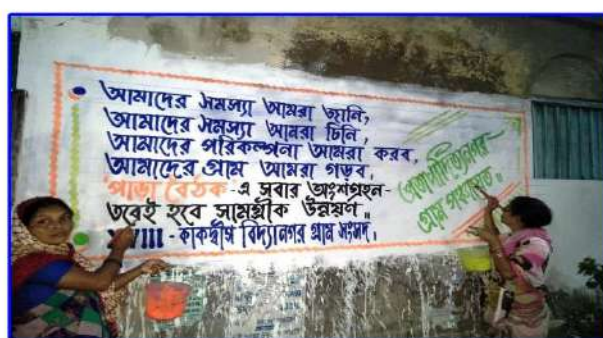 আমাদের সমস্যা আমরা জানি,
আমাদের সমস্যা আমরা চিনি,
আমাদের পরিকল্পনা আমরা করব,
আমাদের গ্রাম আমরা গড়ব,
পাড়া বৈঠক-এ সবার অংশগ্রহন-
তবেই হবে সামগ্রীক উন্নয়ণ॥
XVIII - কাকদ্বীপ বিদ্যানগর গ্রাম সংসদ।
গ্রাম পঞ্চায়েত॥